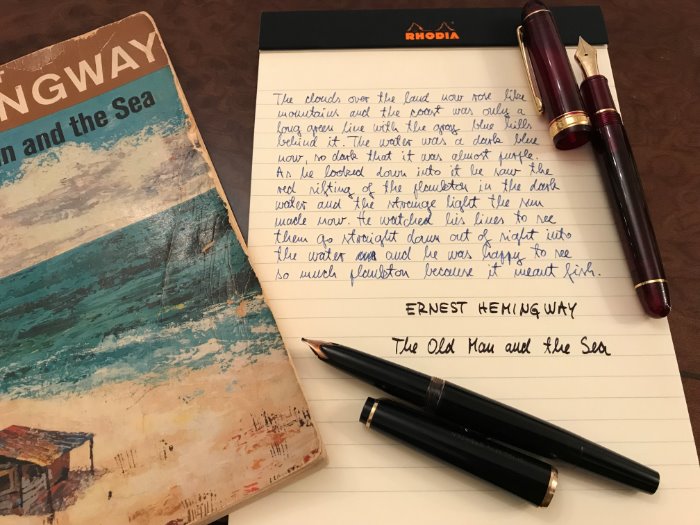 NGWAY
n and the Sea
RHODIA
The clouds over the land now rose like
mountains and the coast was only a
long green line with the gray blue hills
behind it. The water was a dark blue
now, so dark that it was almost purple.
As he looked down into it he saw the
red sifting of the plankton in the dark
water and the strange light the sun
made now. He watched his lines to see
them go straight down out of sight into
the water and he was happy to see
so much plankton because it meant fish.
ERNEST HEMINGWAY
The Old Man and the Sea